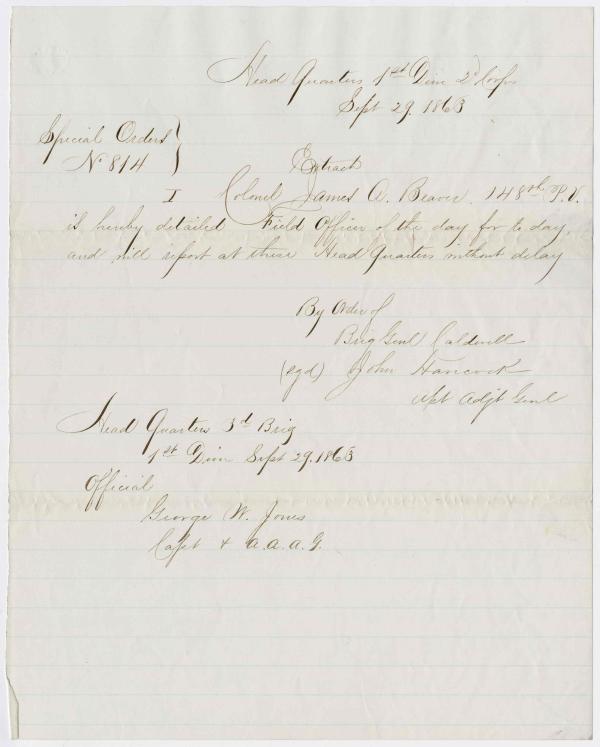 Head Quarters 1st Divn 2d Corps
Sept 29. 1863
Special Orders
No 814
Extract
I Colonel James A. Beaver. 148th P.V.
is hereby detailed Field Officer of the day for to day,
and will report at these Head Quarters without delay
By Order of
Brig Genl Caldwell
(sgd) John Hancock
Asst Adjt Genl
Head Quarters 3d Brig
1st Divn Sept 29. 1863
Official
George W. Jones
Capt & A.A.A.G.